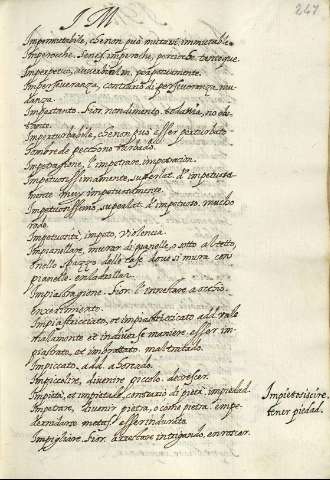 I M
247
Impermutabile, che non può mutarsi, immutable.
Imperoche. Senes. imperochi, perciò che
Imperpetuo, adverbialm. perpetuamente.
Imperseveranza, contrario di perseveranza, mu-
danza.
Impertanto. Fior. nondimeno, no ob-
stante.
Imperturbabile, che non può esser perturbato
hombre de pecho no turbado.
Impetragione, l'impetrare, impetracion.
Impetuosissimamente, superlat. d'impetuosa-
mente muy impetuosamente.
Impetuosissimo, superlat. d'impetuoso, mucho
Impetuosità, impeto, violencia
Impianellare, metter di pianelle, o sotto al tetto,
o nello spazzo delle case dove si mura con
pianelle. enladrillar.
Impiastragione. Fior. l'innestare a occhio.
enxerimento.
Impiastricciato, et impiastricciato add. vale
malamente et in diverse maniere esser im-
piastrato, et imbrattato. maltratado.
Impiccato, add. ahorcado.
Impiccolire, divenire piccolo. decrescer.
Impietà, et impietade, contrario di pietà. impiedad.
Impetrare, divenir pietra, o come pietra. impe-
dernido metaf. esser indurato
Impigliare. Fior.
Impietosicire.
tener piedad.